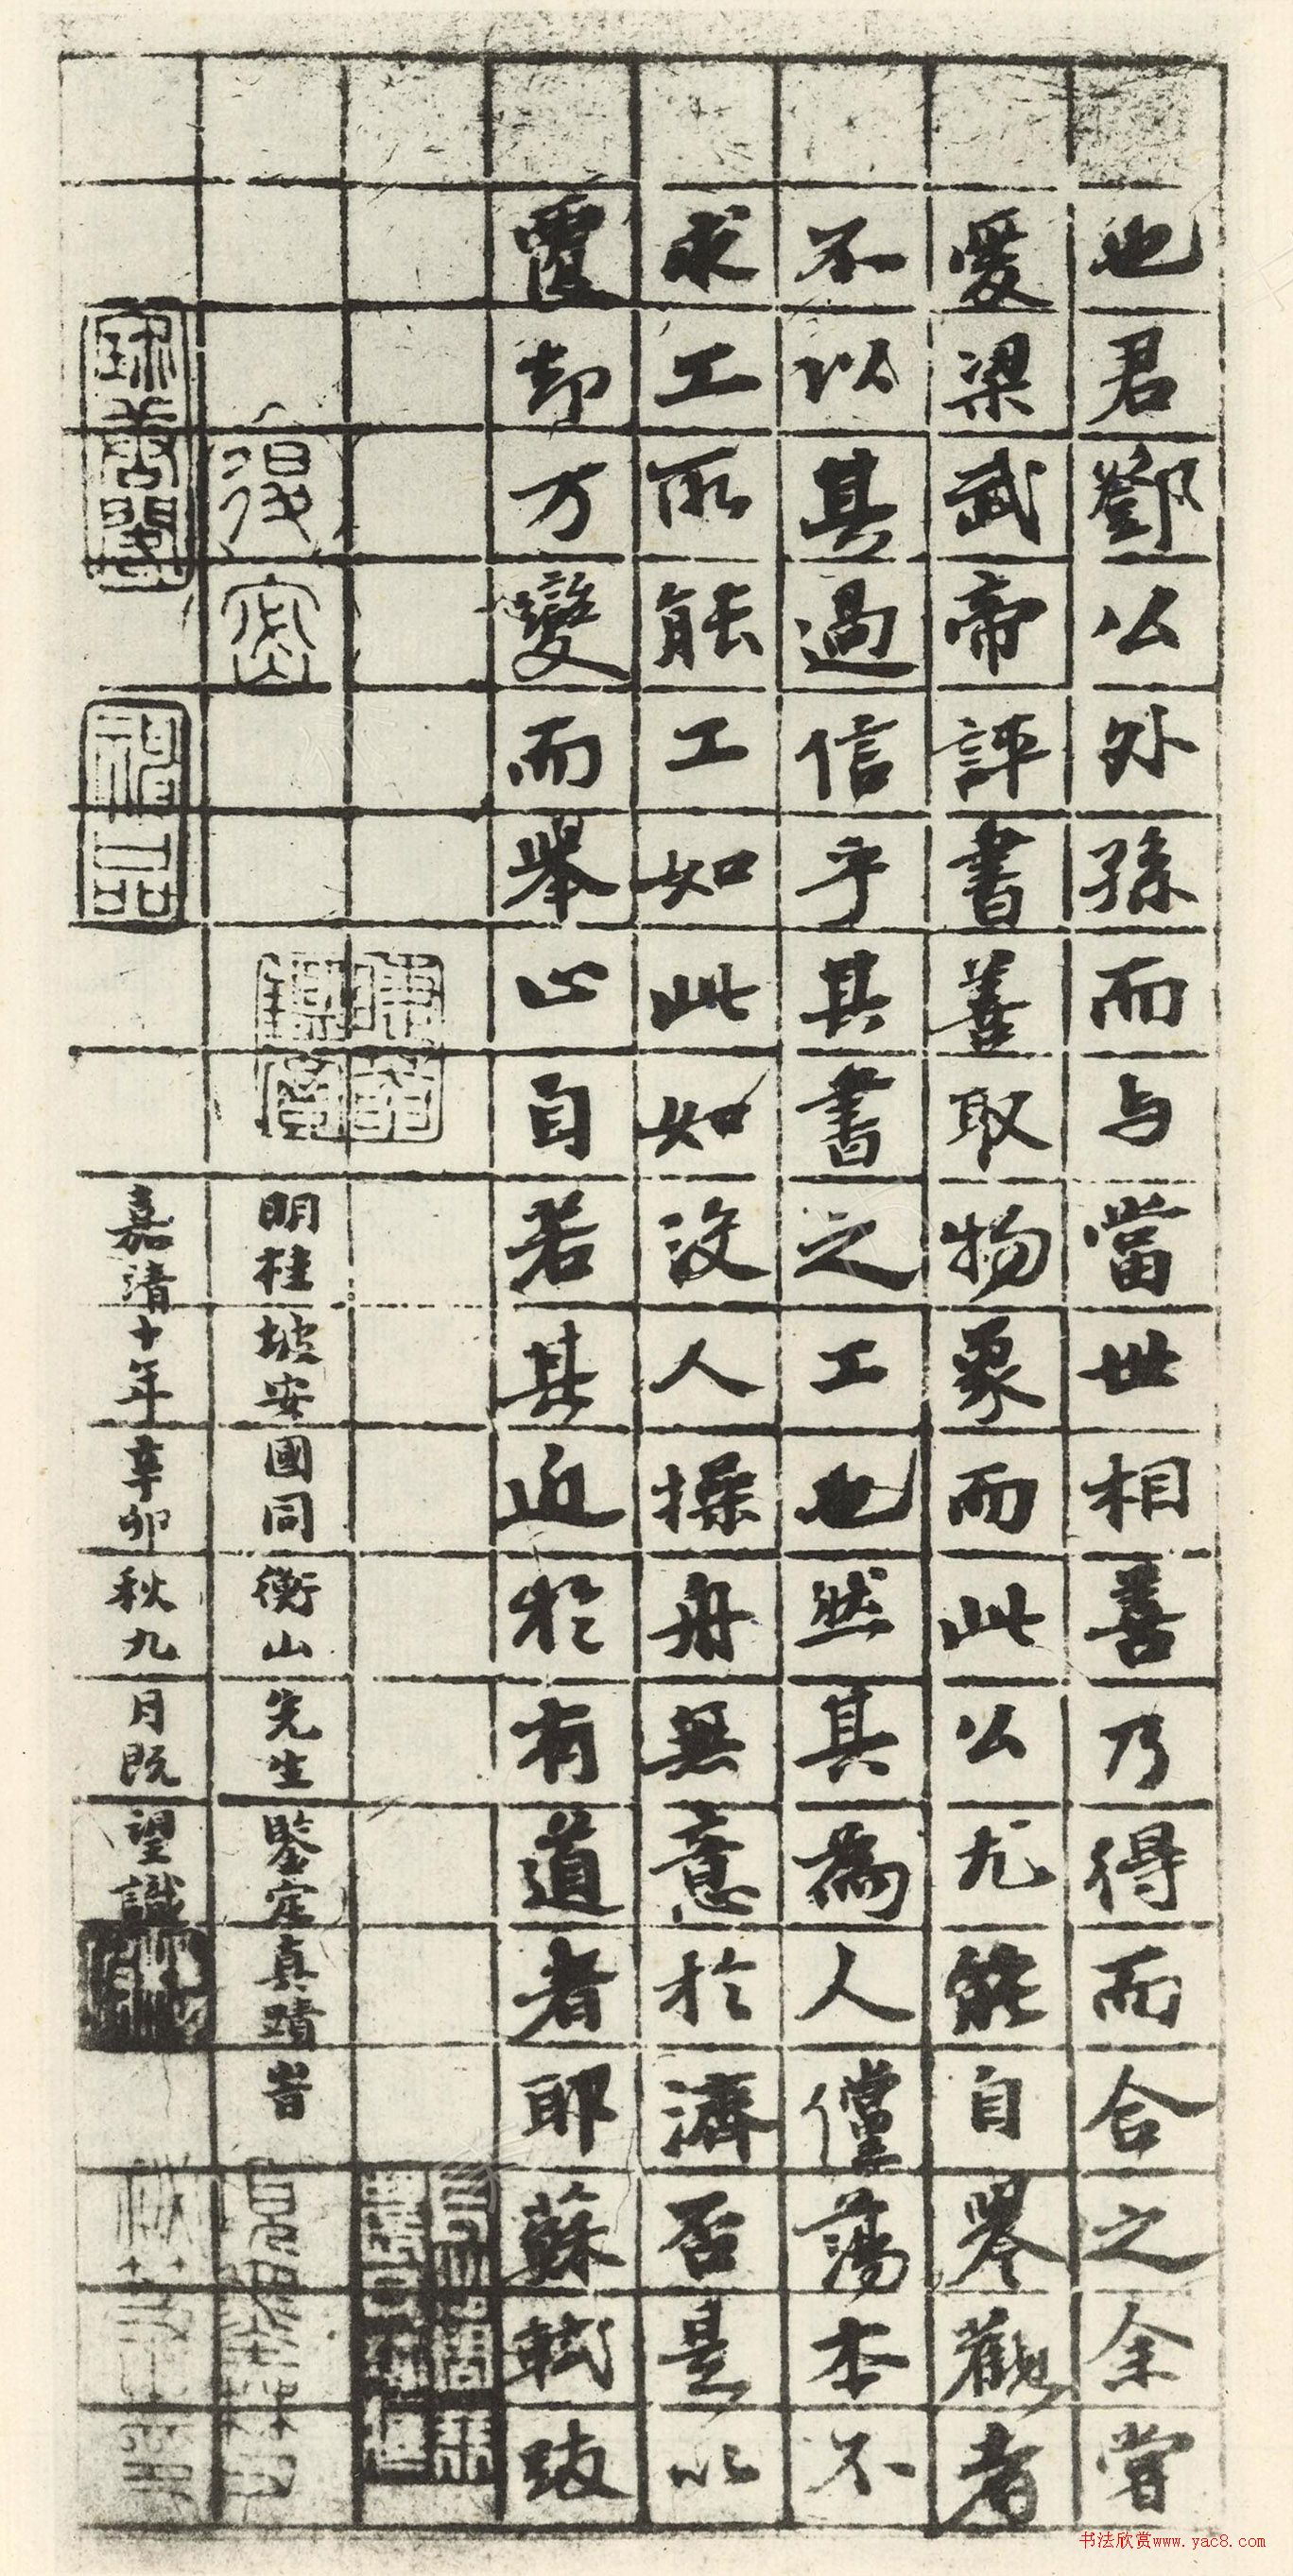 也君鄧公外孫而与當世相善乃得而合之余嘗
愛梁武帝評書善取物象而此公尤能自譽觀者
不以其過信乎其書之工也然其為人儻蕩本不
求工所能工如此如沒人操舟無意於濟否是以
覆却万變而舉止自若其近於有道者耶蘇軾跋
明桂坡安國同衡山先生鑒定真蹟旹
嘉靖十年辛卯秋九月既望識
神品
书法欣赏www.yac8.com